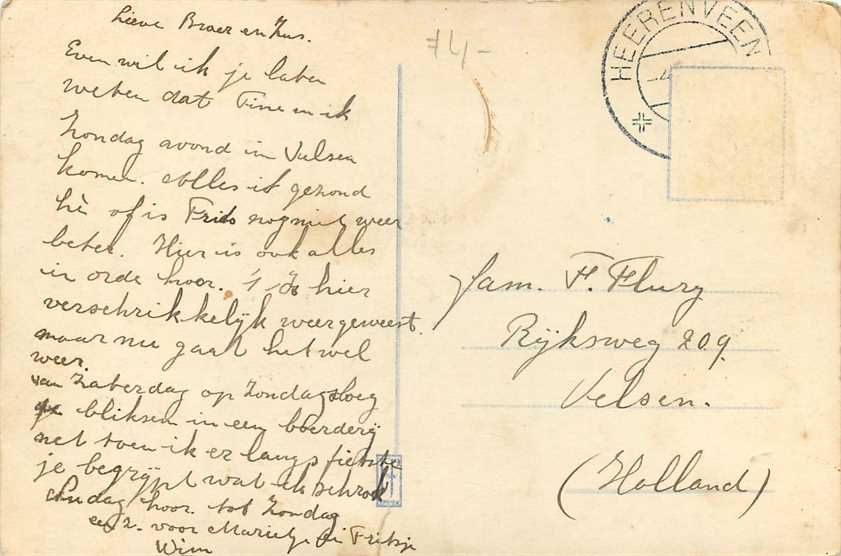 Lieve Broer en Zus.
Even wil ik je laten
weten dat Tine en ik
Zondag avond in Velsen
komen. Alles is gezond
hè of is Frits nog niet weer
beter. Hier is ook alles
in orde hoor. 't Is hier
verschrikkelijk weer geweest.
maar nu gaat het wel
weer.
van Zaterdag op Zondag sloeg
de bliksen in een boerderij
net toen ik er langs fietste
je begrijpt wat ik schrok
dag hoor. tot Zondag
voor Marietje en Fritsje
Wim
74-
HEERENVEEN
Fam. F. Flury
Rijksweg 209.
Velsen.
(Holland)